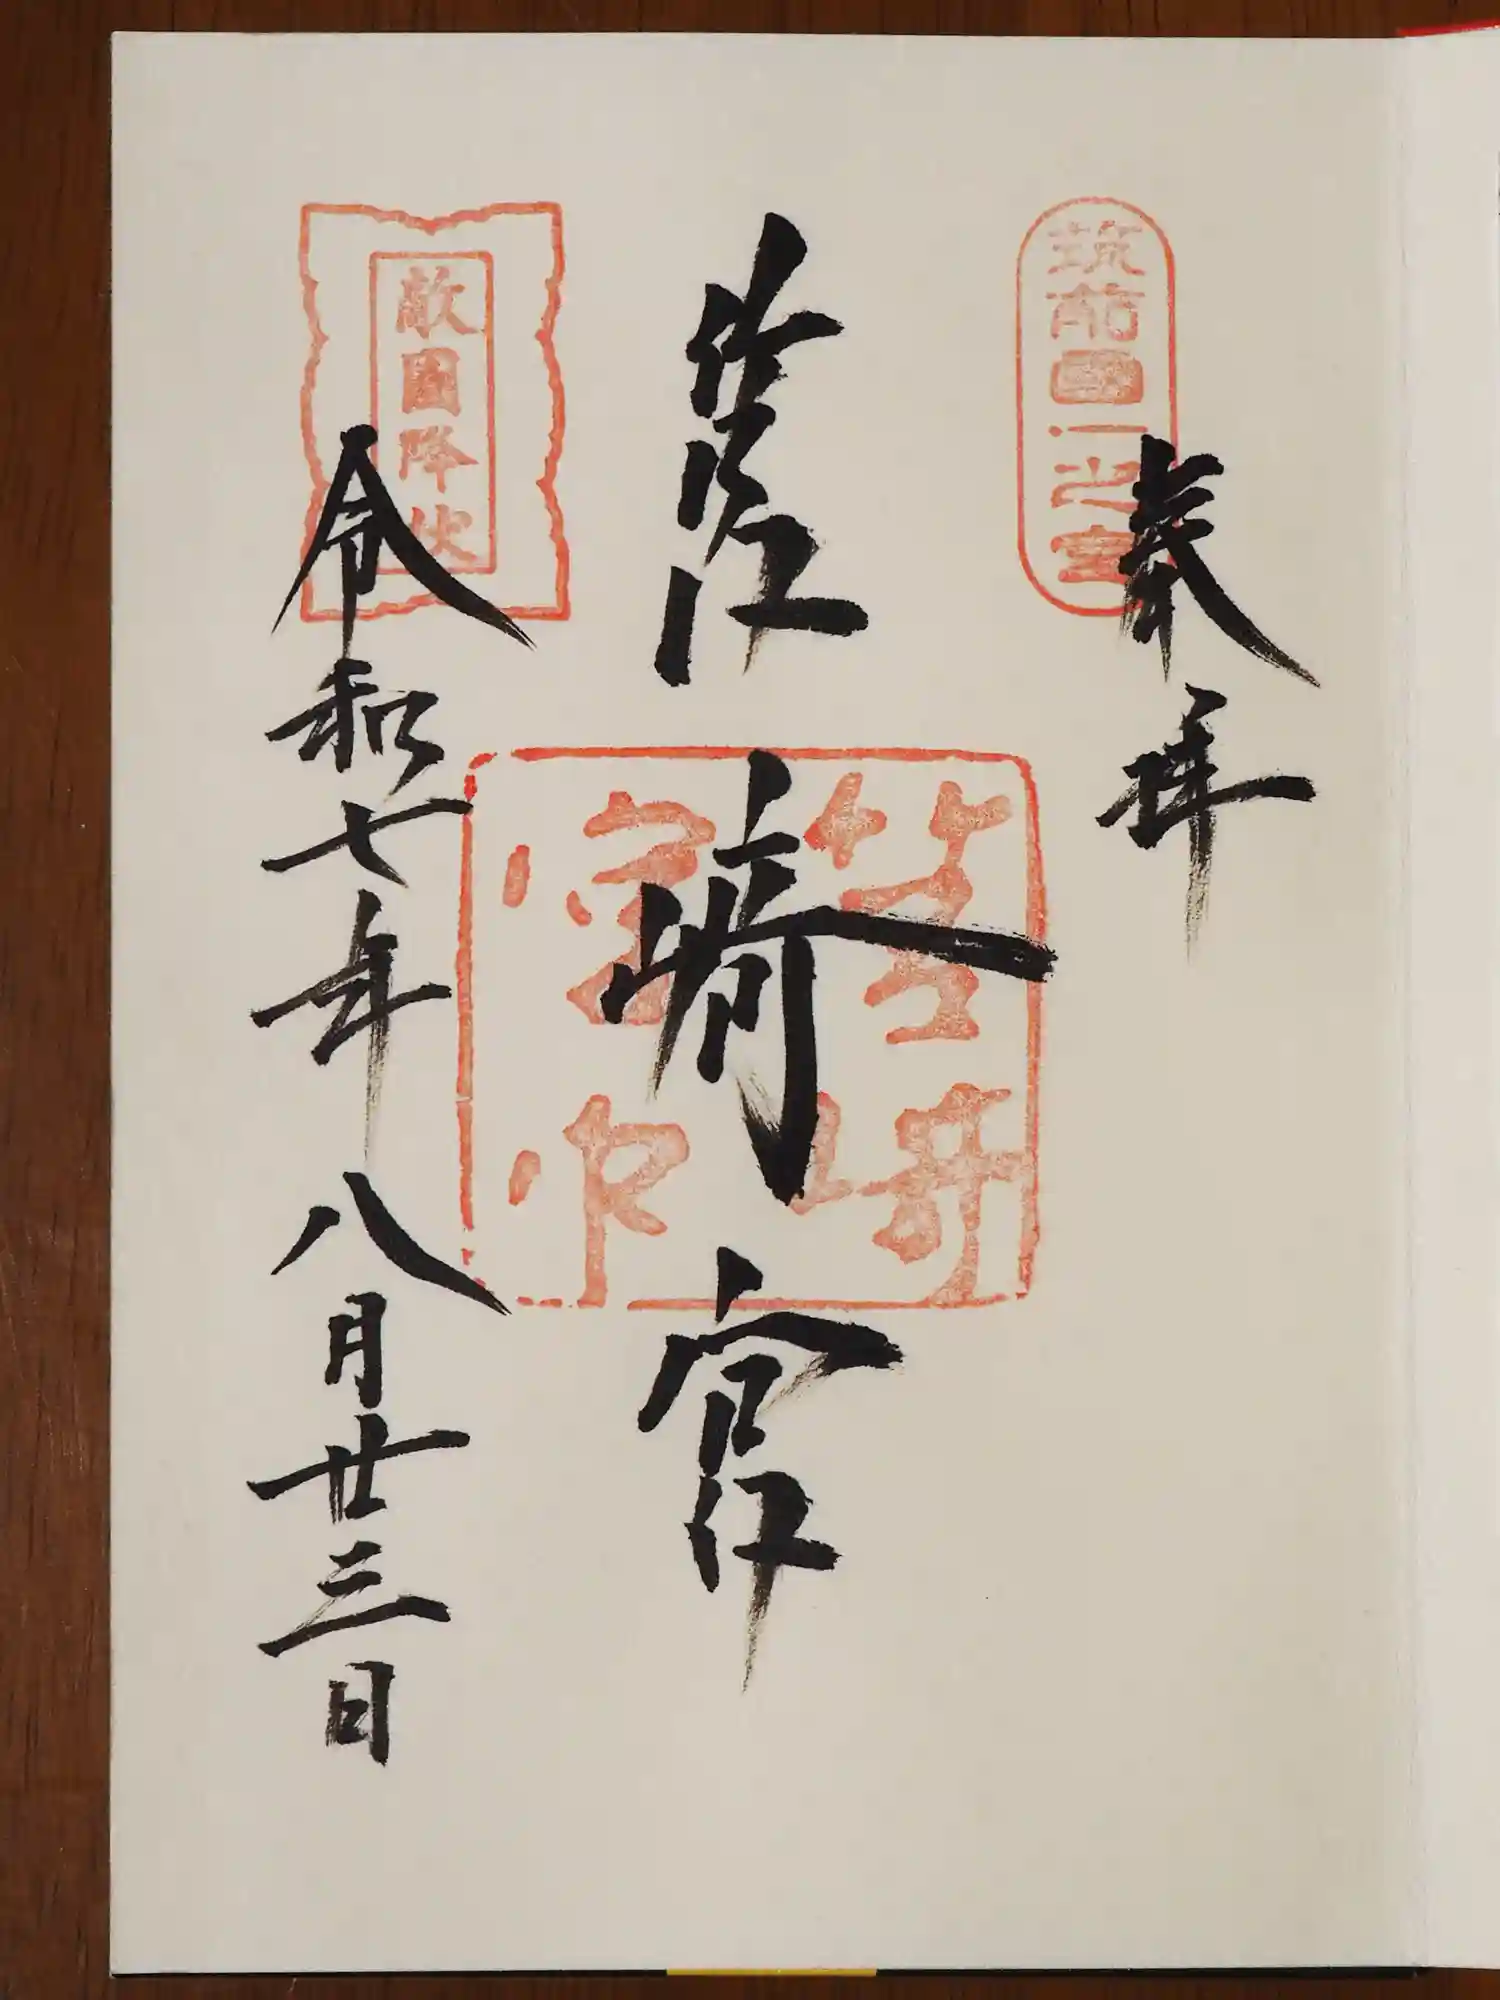 筑前國一之宮
奉拝
筥崎宮
筥崎宮印
敵國降伏
令和七年八月廿三日